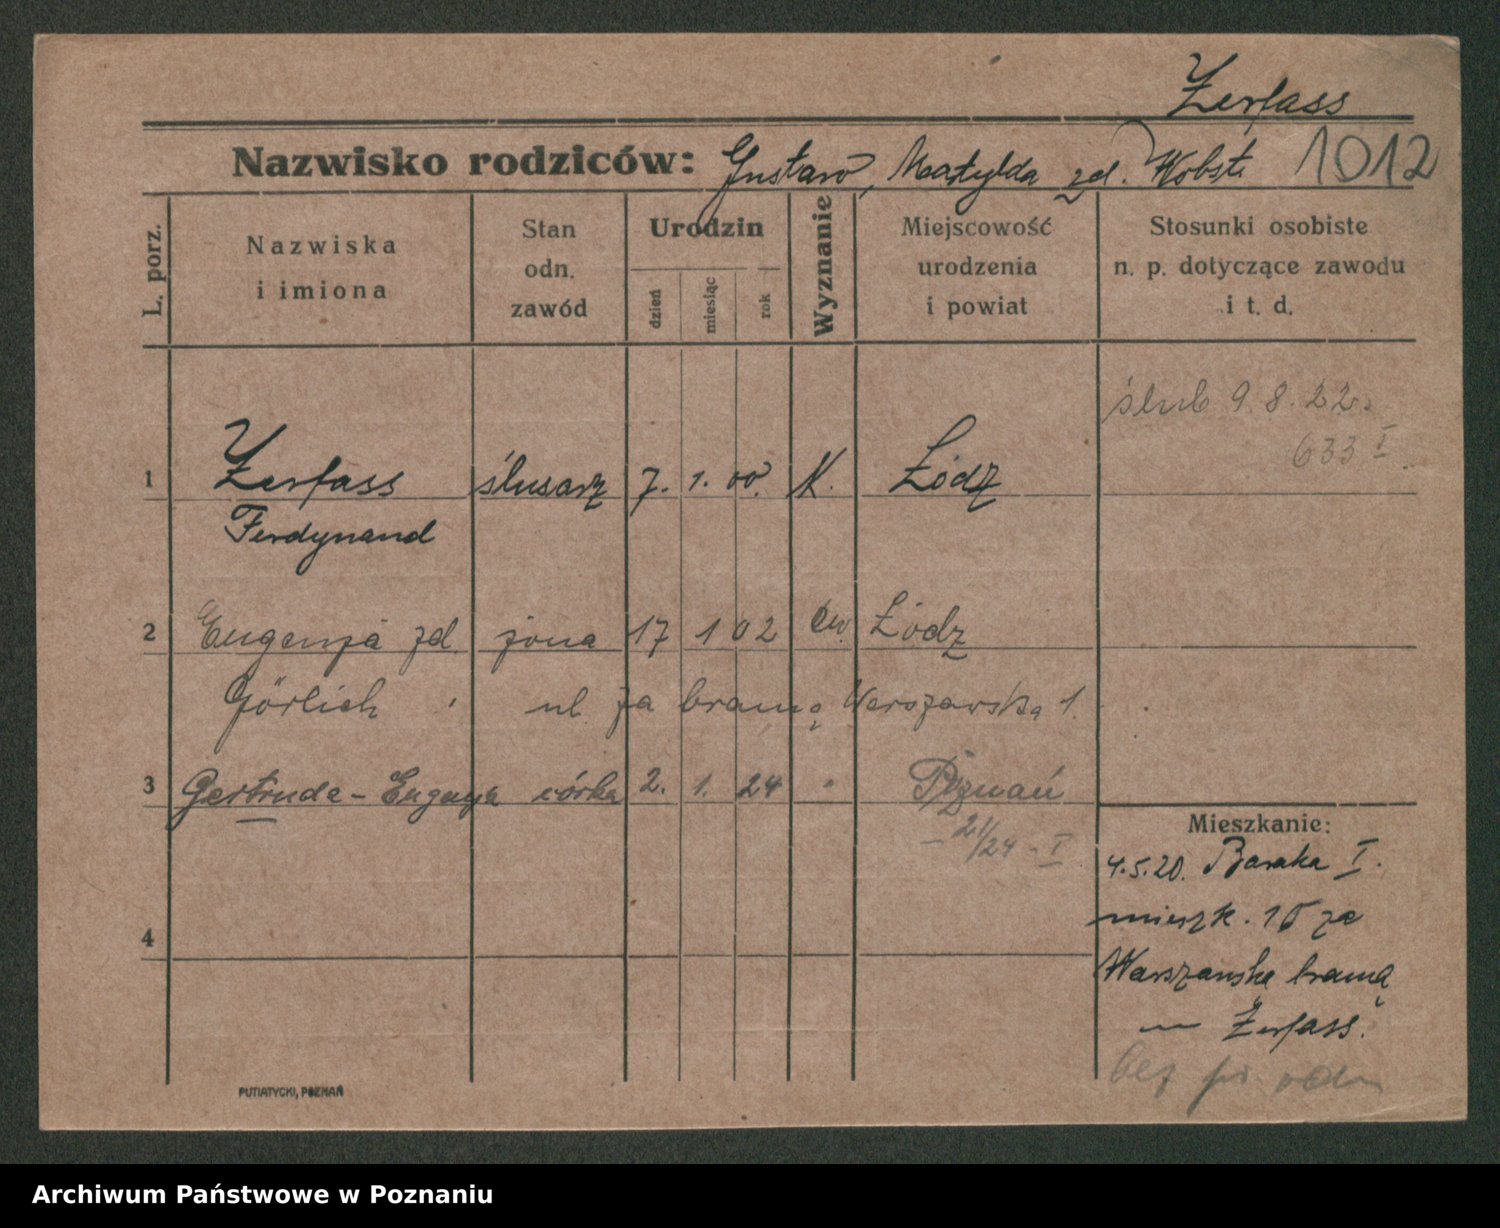 Zerfass
Nazwisko rodziców: Gustaw, Matylda zd. Wobst 1012
L. porz.
Nazwiska
i imiona
Stan
odn.
zawód
Urodzin
dzień
miesiąc
rok
Wyznanie
Miejscowość
urodzenia
i powiat
Stosunki osobiste
n. p. dotyczące zawodu
i t. d.
ślub 9.8.22.
633 I
1 Zerfass ślusarz 7. 1. 00. K. Łódź
Ferdynand
2 Eugenja zd żona 17 1 02 ew. Łódz
Görlich ul za bramą Warszawską 1.
3 Gertruda-Eugenja córka 2. 1. 24 " Poznań
- 21/24 - I
4
Mieszkanie:
4.5.20. Baraka I.
mieszk. 10 za
Warszawską bramą
Zerfass.
bez
PUTIATYCKI, POZNAŃ
Archiwum Państwowe w Poznaniu